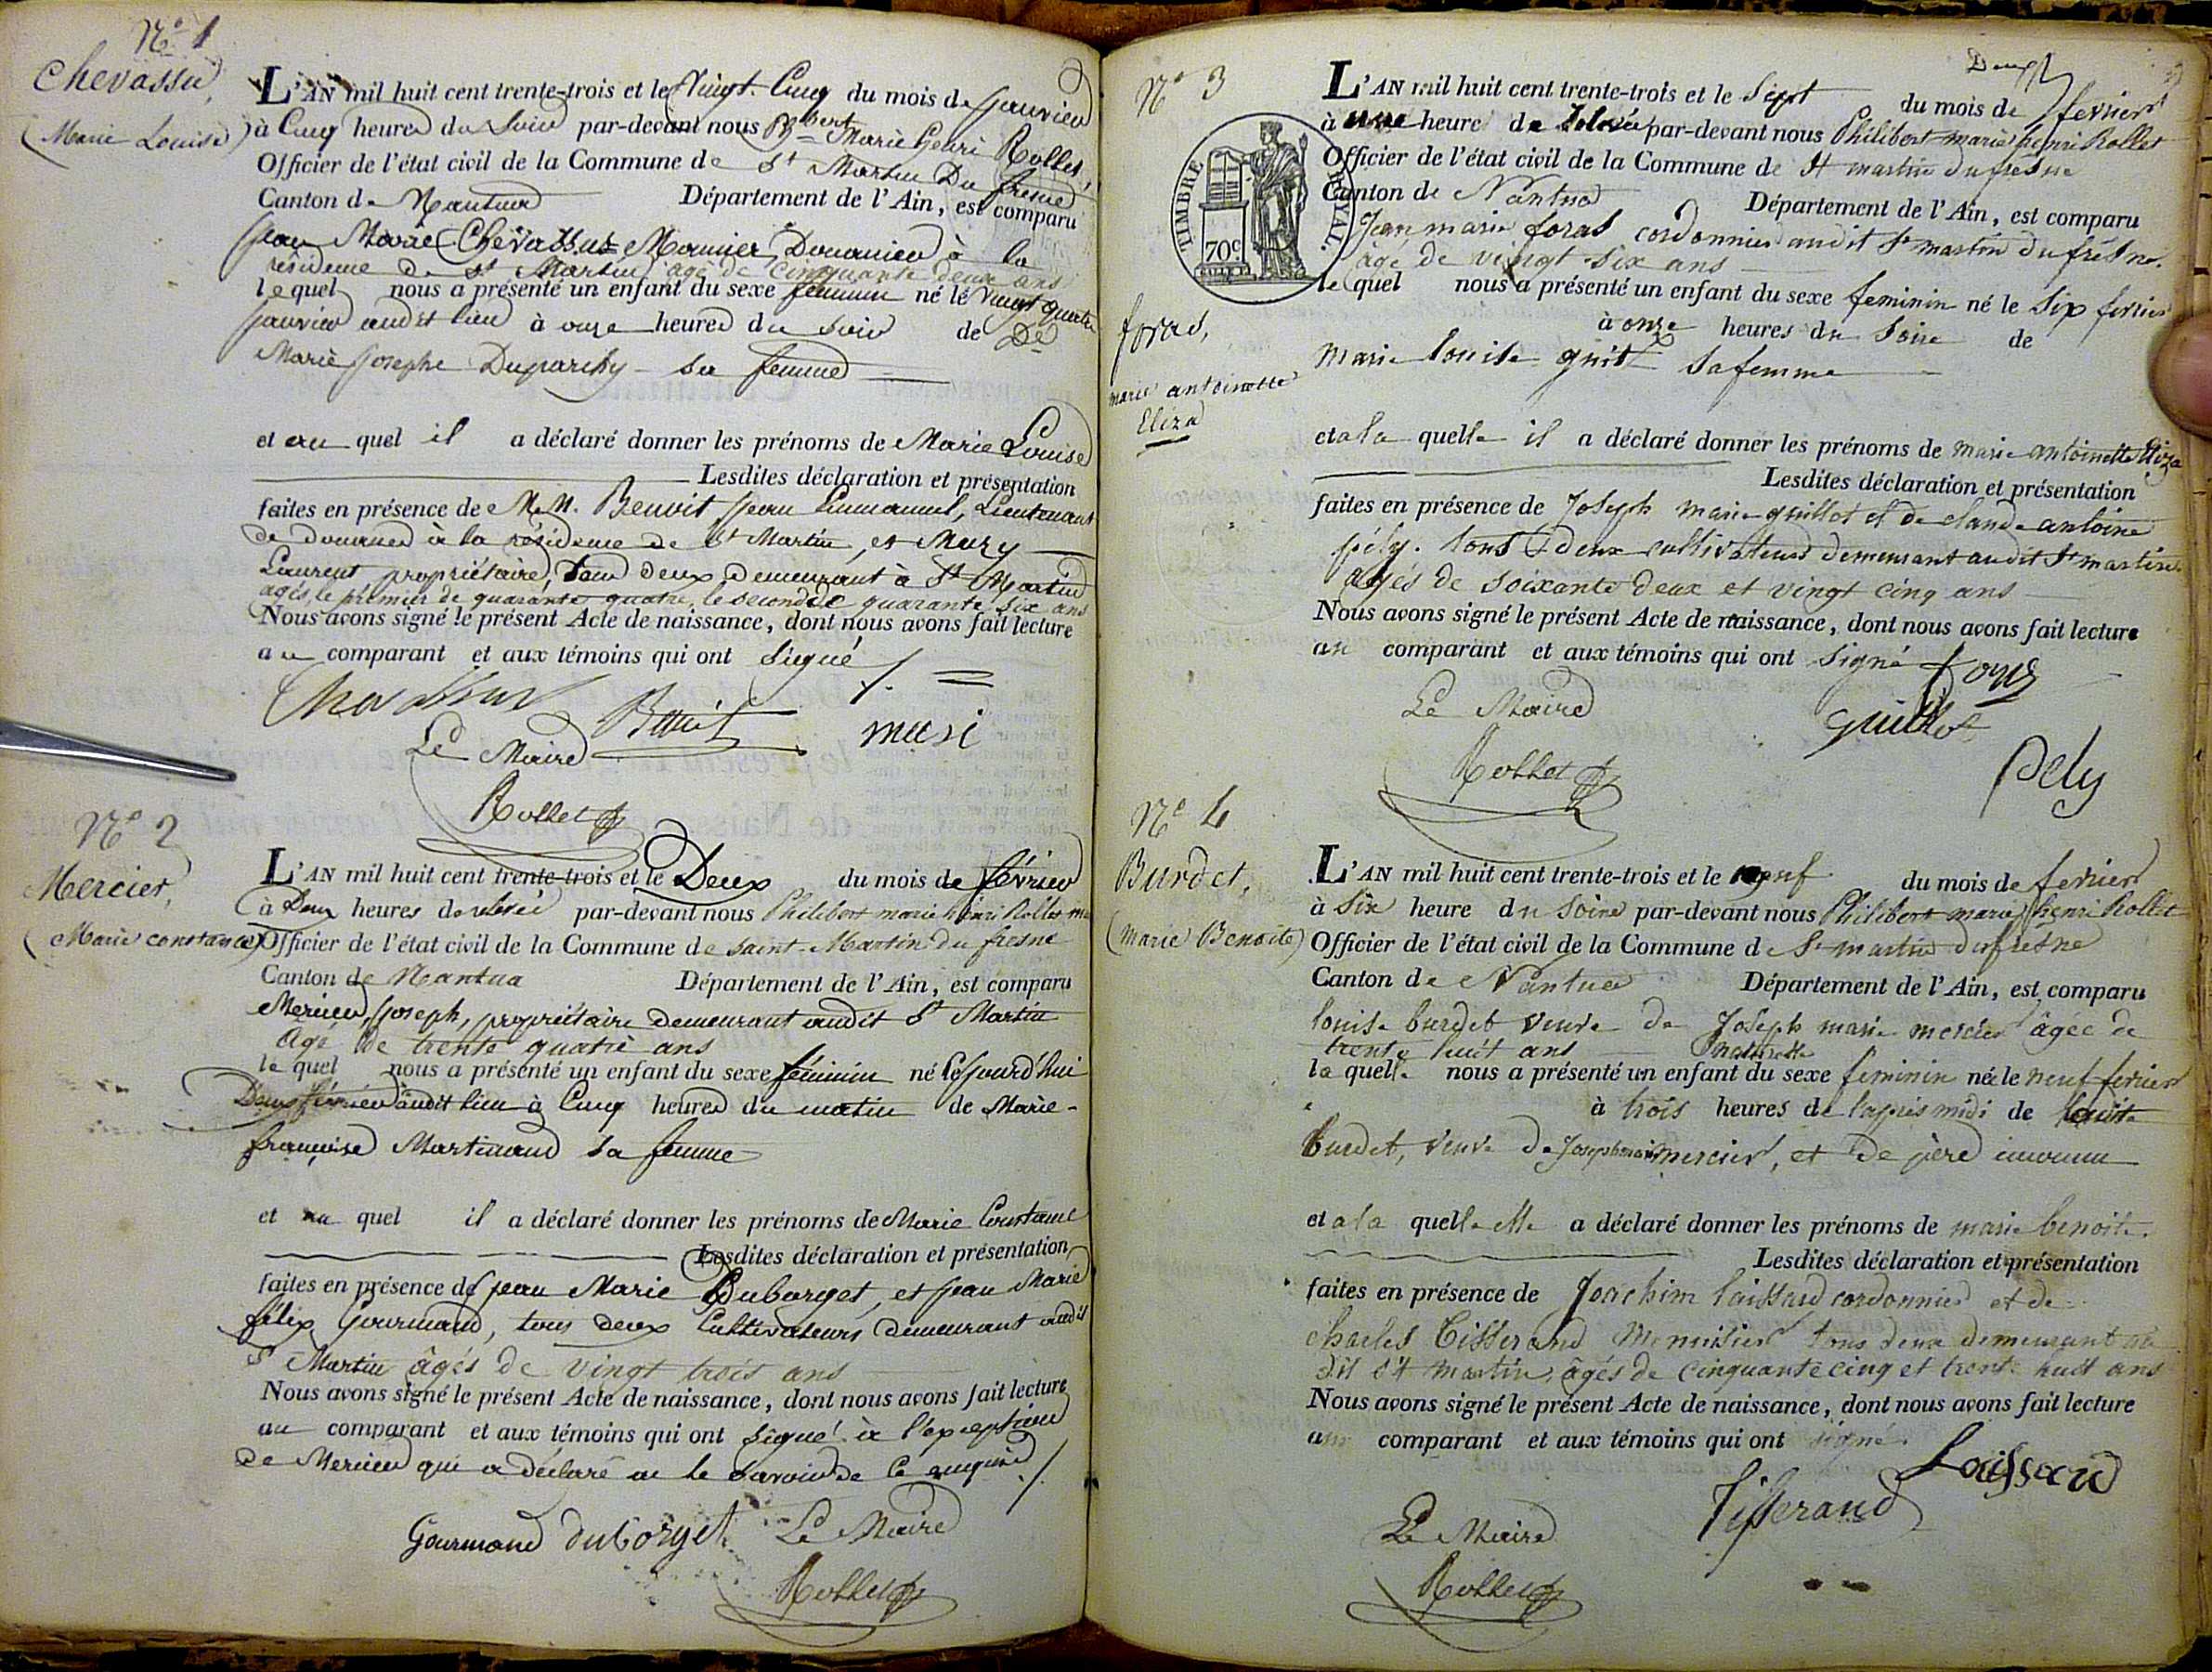 N.o 1
Chevassu,
(Marie Louise)
L'AN mil huit cent trente-trois et le Vingt-Cinq du mois de Janvier
à Cinq heures du Soir par-devant nous Ph=bert Marie henri Rollet,
Officier de l'état civil de la Commune de St Martin Du fresne
Canton de Nantua Département de l'Ain, est comparu
Jean Marie Chevassus Mounier, Douanier à la
résidence de St Martin, agé de cinquante deux ans
lequel nous a présenté un enfant du sexe féminin né le vingt quatre
janvier audit lieu à onze heures du soir de De
Marie Josephe Duparchy sa femme
et au quel il a déclaré donner les prénoms de Marie Louise
Lesdites déclaration et présentation
faites en présence de M.M. Benoit Jean Emmanuel, Lieutenant
de douanes à la résidence de St Martin, et Mury
Laurent, propriétaire, tous deux Demeurant à St Martin
agés, le premier de quarante quatre, le second de quarante six ans
Nous avons signé le présent Acte de naissance, dont nous avons fait lecture
au comparant et aux témoins qui ont Signé ./. =
Benoit
Le Maire
Rollet
N.o 2
Mercier,
(Marie constance)
L'AN mil huit cent trente-trois et le Deux du mois de février
à Deux heures de relevée par-devant nous Philibert marie henri Rollet
Officier de l'état civil de la Commune de saint-Martin du fresne
Canton de Nantua Département de l'Ain, est comparu
Mercier, Joseph, propriétaire demeurant audit St Martin
agé de trente quatre ans
le quel nous a présenté un enfant du sexe féminin né cejourd'hui
Deux février audit lieu à Cinq heures du matin de Marie-
françoise Martinand sa femme
et au quel il a déclaré donner les prénoms de Marie Constance
Lesdites déclaration et présentation
faites en présence de Jean Marie Duborget, et Jean Marie
félix Gourmand, tous deux Cultivateurs demeurant audit
St Martin âgés de vingt trois ans
Nous avons signé le présent Acte de naissance, dont nous avons fait lecture
au comparant et aux témoins qui ont signé à l'exception
de Mercier qui a déclaré ne le savoir de ce enquis ./.
Gourmand duborget Le Maire
Rollet
Deux
N.o 3
TIMBRE ROYAL.
70c
foras,
marie antoinette
Eliza
L'AN mil huit cent trente-trois et le Sept du mois de fevrier
à une heure de relevée par-devant nous Philibert marie henri Rollet
Officier de l'état civil de la Commune de St martin du fresne
Canton de Nantua Département de l'Ain, est comparu
Jean marie foras cordonnier audit St martin du frésne.
âgé de vingt six ans
le quel nous a présenté un enfant du sexe feminin né le Six fevrier
à onze heures du Soire de
marie louise sa femme
et a la quelle il a déclaré donner les prénoms de marie antoinette Eliza
Lesdites déclaration et présentation
faites en présence de Joseph marie guillot et de claude antoine
pély. tous deux cultivateurs demeurant audit St martin
agés de soixante deux et vingt cinq ans
Nous avons signé le présent Acte de naissance, dont nous avons fait lecture
au comparant et aux témoins qui ont signé
Le Maire
guillot
Rollet
pely
N.o 4
Burdet,
(marie Benoite)
L'AN mil huit cent trente-trois et le neuf du mois de fevrier
à Six heure du Soire par-devant nous Philibert marie henri Rollet
Officier de l'état civil de la Commune de St martin du fresne
Canton de Nantua Département de l'Ain, est comparu
louise burdet veuve de Joseph marie mercier âgée de
trente huit ans
la quelle nous a présenté un enfant du sexe feminin née le neuf fevrier
à trois heures de l'après midi de ladite
burdet, veuve de Joseph marie mercier, et de père inconnu
et a la quelle elle a déclaré donner les prénoms de marie benoite.
Lesdites déclaration et présentation
faites en présence de Joachim laissard cordonnier et de
charles tisserand Menuisier tous deux demeurant au
dit St martin, âgés de cinquante cinq et trente huit ans
Nous avons signé le présent Acte de naissance, dont nous avons fait lecture
au comparant et aux témoins qui ont signé.
Laissard
Tisserand
Le Maire
Rollet